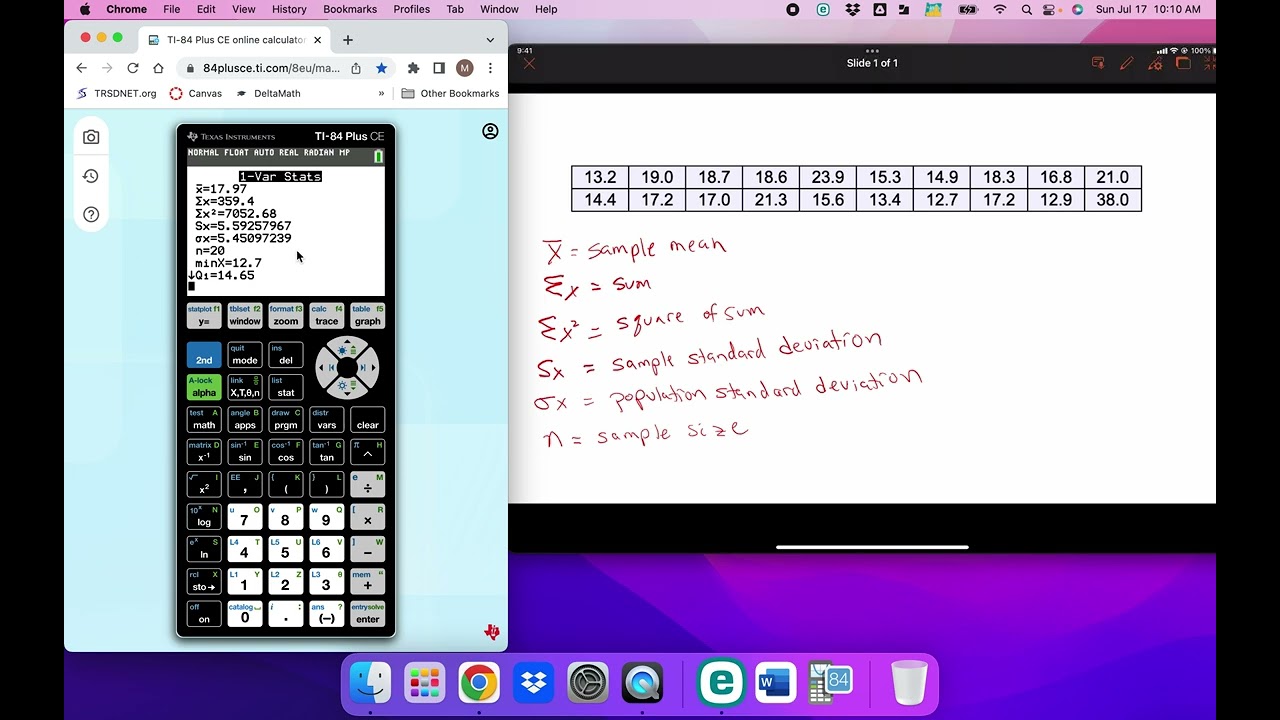 Chrome File Edit View History Bookmarks Profiles Tab Window Help Sun Jul 17 10:10 AM
TI-84 Plus CE online calculator
84plusce.ti.com/8eu/ma...
M
TRSDNET.org Canvas DeltaMath » Other Bookmarks
TEXAS INSTRUMENTS TI-84 Plus CE
NORMAL FLOAT AUTO REAL RADIAN MP
1-Var Stats
x̄=17.97
Σx=359.4
Σx²=7052.68
Sx=5.59257967
σx=5.45097239
n=20
minX=12.7
↓Q₁=14.65
statplot f1 tblset f2 format f3 calc f4 table f5
y= window zoom trace graph
quit ins
2nd mode del
A-lock link list
alpha X,T,θ,n stat
test A angle B draw C distr
math apps prgm vars clear
matrix D sin⁻¹ E cos⁻¹ F tan⁻¹ G π H
x⁻¹ sin cos tan ^
√ I EE J { K } L e M
x² , ( ) ÷
10ˣ N u O v P w Q [ R
log 7 8 9 ×
eˣ S L4 T L5 U L6 V ] W
ln 4 5 6 −
rcl X L1 Y L2 Z L3 θ mem "
sto→ 1 2 3 +
off catalog i : ans ? entry solve
on 0 . (−) enter
9:41 100%
Slide 1 of 1
13.2 19.0 18.7 18.6 23.9 15.3 14.9 18.3 16.8 21.0
14.4 17.2 17.0 21.3 15.6 13.4 12.7 17.2 12.9 38.0
x̄ = sample mean
Σx = sum
Σx² = square of sum
Sx = sample standard deviation
σx = population standard deviation
n = sample size
e W 84